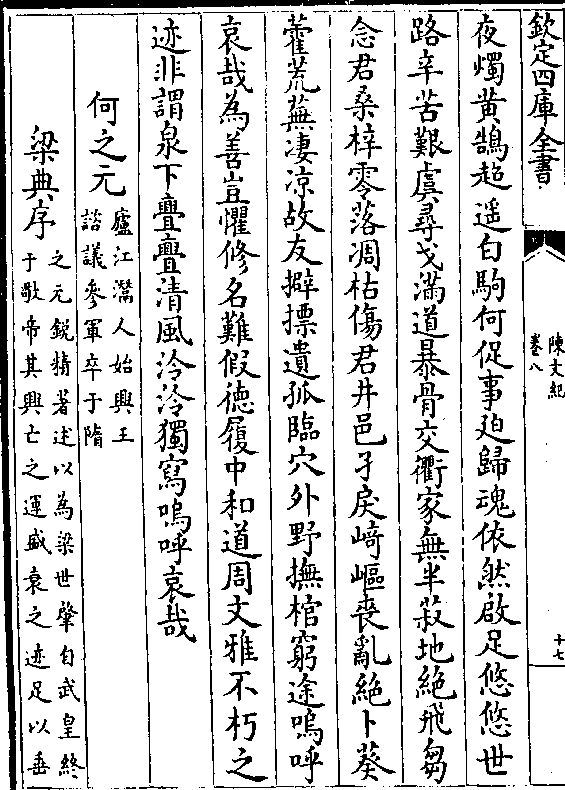 欽定四庫全書
陳文紀
卷八
十七
夜燭黄鵠超遥白駒何促事迫歸魂依然啟足悠悠世
路辛苦艱虞尋戈滿道暴骨交衢家無半菽地絶飛芻
念君桑梓零落凋枯傷君井邑孑戾崎嶇喪亂絶卜葵
藿荒蕪凄凉故友擗摽遺孤臨穴外野撫棺窮途嗚呼
哀哉為善豈懼修名難假徳履中和道周文雅不朽之
迹非謂泉下亹亹清風泠泠獨寫嗚呼哀哉
何之元
廬江灊人始興王
諮議參軍卒于隋
梁典序
之元鋭精著述以為梁世肇自武皇終
于敬帝其興亡之運盛衰之迹足以垂